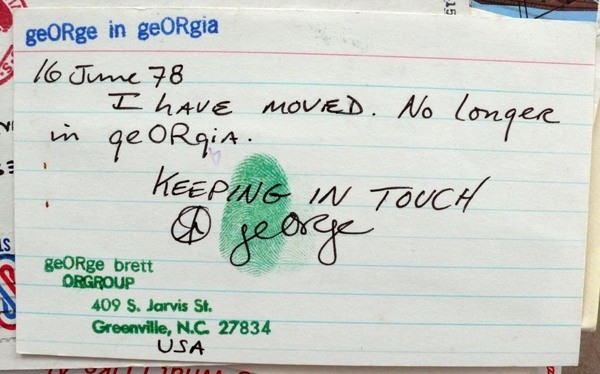 geORge in geORgia
16 June 78
I HAVE MOVED. No longer
in geORgiA.
KEEPING IN TOUCH
geOrge
geORge brett
ORGROUP
409 S. Jarvis St.
Greenville, N.C. 27834
USA